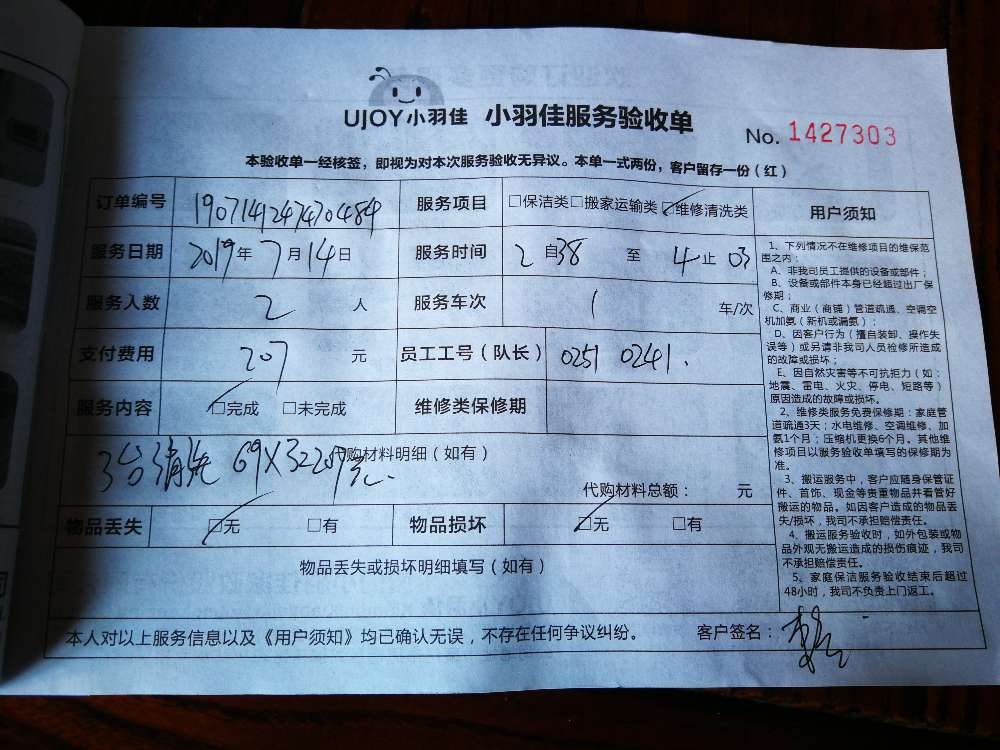 UJOY小羽佳 小羽佳服务验收单
No. 1427303
本验收单一经核签，即视为对本次服务验收无异议。本单一式两份，客户留存一份（红）
订单编号 190714124740484 服务项目 □保洁类□搬家运输类☑维修清洗类
服务日期 2019年7月14日 服务时间 2自38 至 4止03
服务人数 2 人 服务车次 1 车/次
支付费用 207 元 员工工号（队长） 0251 0241.
服务内容 ☑完成 □未完成 维修类保修期
代购材料明细（如有）
3台清洗 69X3=207元.
代购材料总额： 元
物品丢失 ☑无 □有 物品损坏 ☑无 □有
物品丢失或损坏明细填写（如有）
用户须知
1、下列情况不在维修项目的维保范
围之内：
A、非我司员工提供的设备或部件；
B、设备或部件本身已经超过出厂保
修期；
C、商业（商铺）管道疏通、空调空
机加氨（新机或漏氨）；
D、因客户行为（擅自装卸、操作失
误等）或另请非我司人员检修所造成
的故障或损坏；
E、因自然灾害等不可抗拒力（如：
地震、雷电、火灾、停电、短路等）
原因造成的故障或损坏。
2、维修类服务免费保修期：家庭管
道疏通3天；水电维修、空调维修、加
氨1个月；压缩机更换6个月。其他维
修项目以服务验收单填写的保修期为
准。
3、搬运服务中，客户应随身保管证
件、首饰、现金等贵重物品并看管好
搬运的物品。如因客户造成的物品丢
失/损坏，我司不承担赔偿责任。
4、搬运服务验收时，如外包装或物
品外观无搬运造成的损伤痕迹，我司
不承担赔偿责任。
5、家庭保洁服务验收结束后超过
48小时，我司不负责上门返工。
本人对以上服务信息以及《用户须知》均已确认无误，不存在任何争议纠纷。 客户签名：